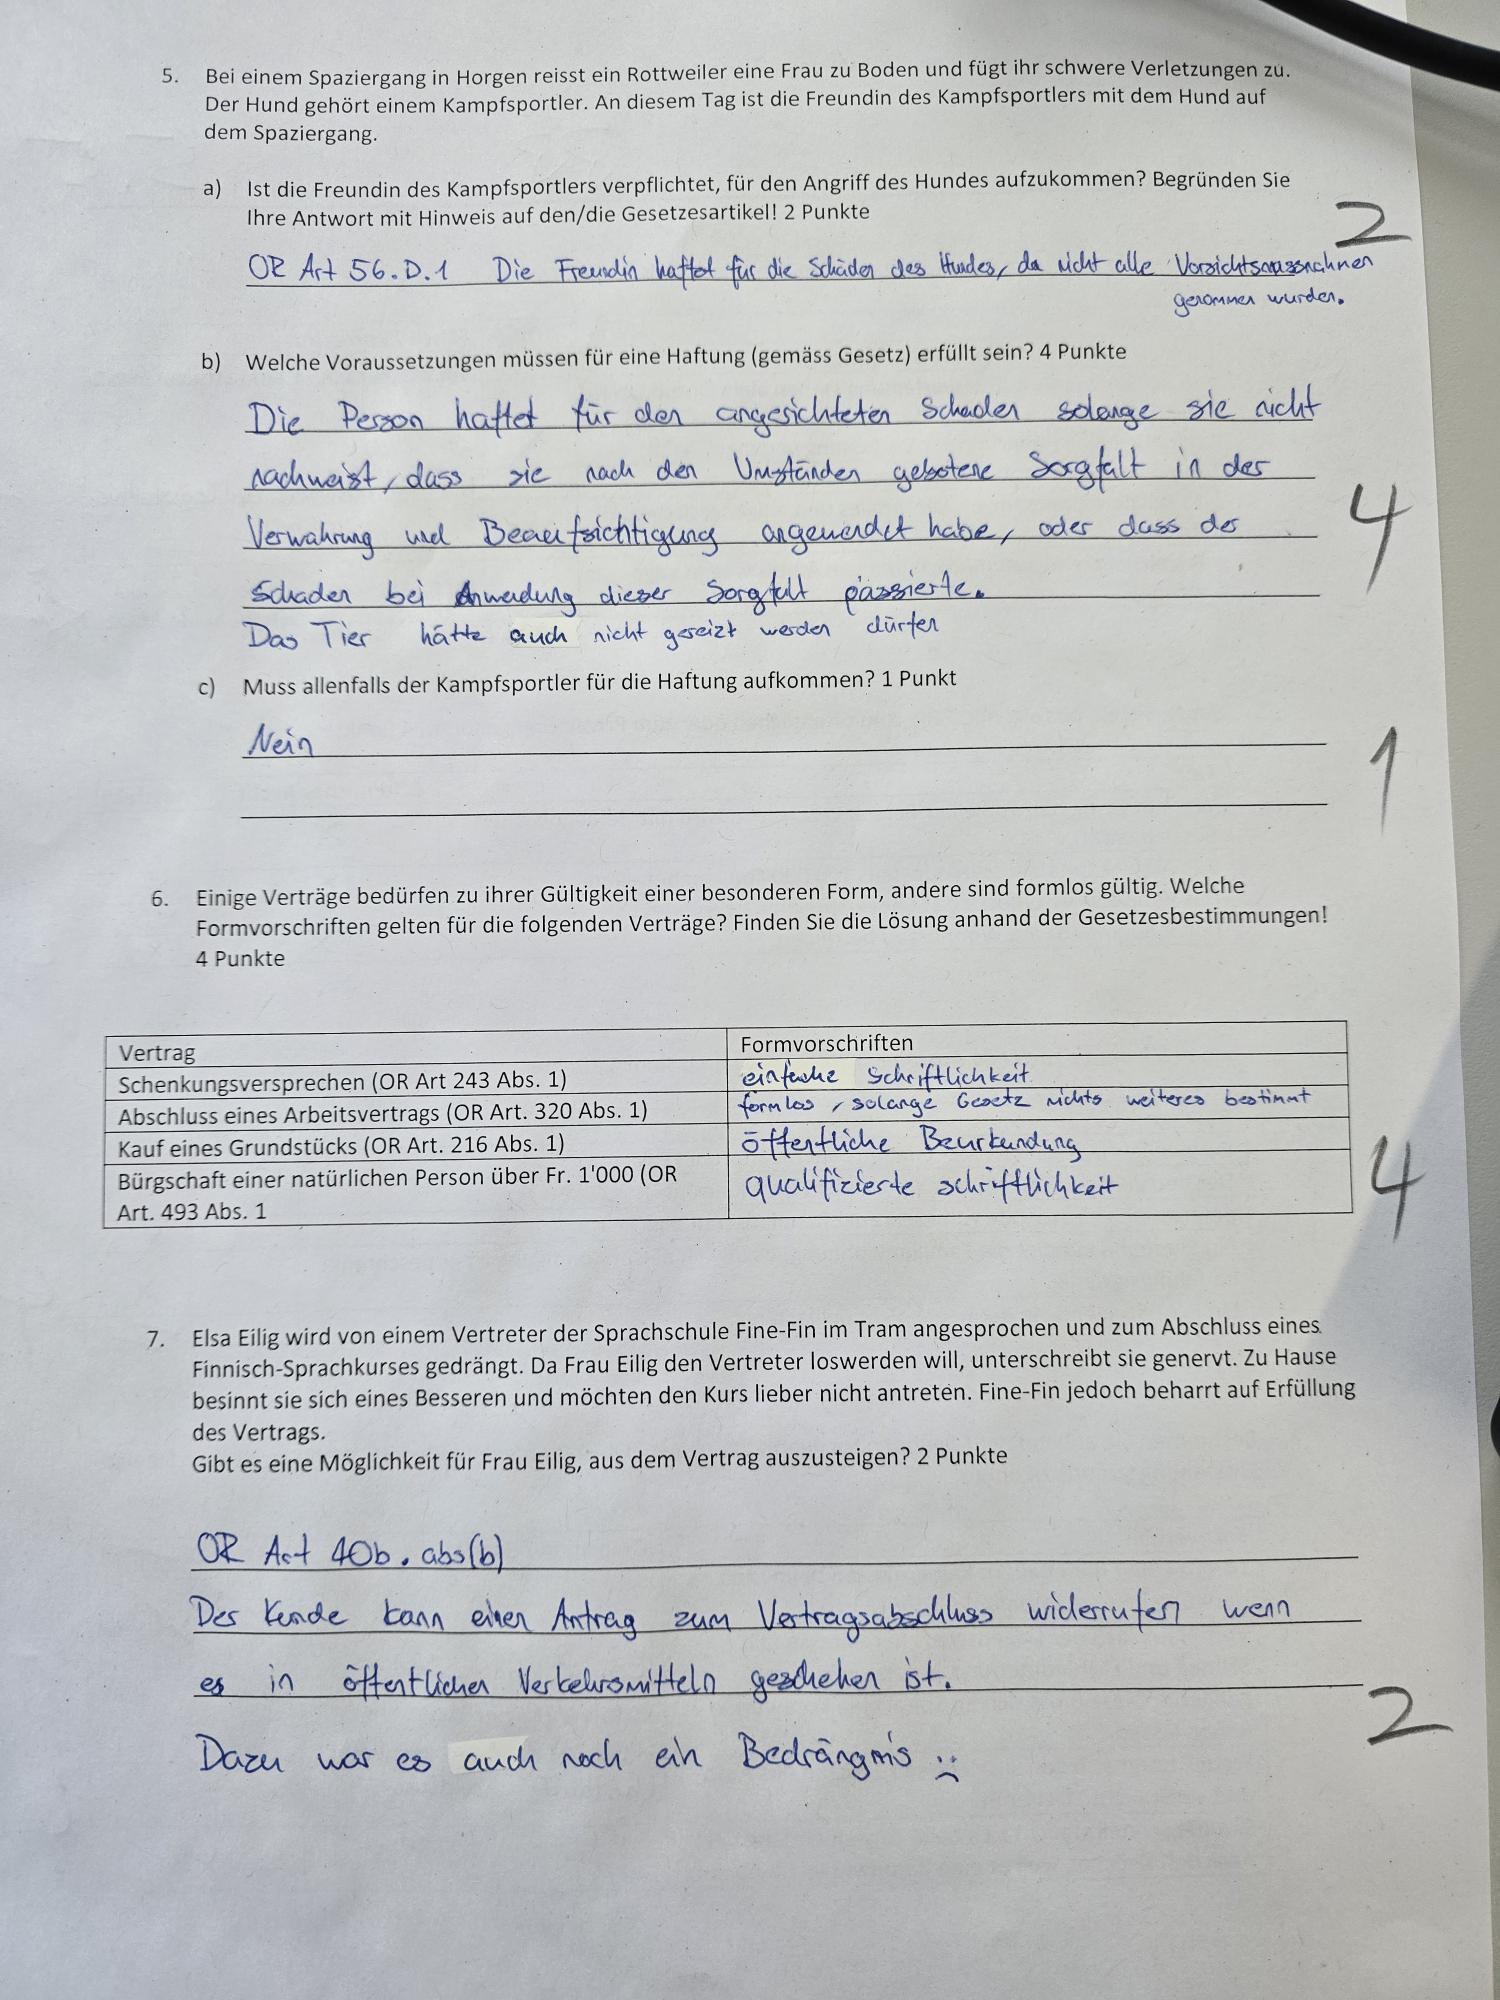 5. Bei einem Spaziergang in Horgen reisst ein Rottweiler eine Frau zu Boden und fügt ihr schwere Verletzungen zu.
Der Hund gehört einem Kampfsportler. An diesem Tag ist die Freundin des Kampfsportlers mit dem Hund auf
dem Spaziergang.
a) Ist die Freundin des Kampfsportlers verpflichtet, für den Angriff des Hundes aufzukommen? Begründen Sie
Ihre Antwort mit Hinweis auf den/die Gesetzesartikel! 2 Punkte
2
OR Art 56.D.1 Die Freundin haftet für die Schäden des Hundes, da nicht alle Vorsichtsmassnahmen
genommen wurden.
b) Welche Voraussetzungen müssen für eine Haftung (gemäss Gesetz) erfüllt sein? 4 Punkte
Die Person haftet für den angesichteten Schaden solange sie nicht
nachweist, dass sie nach den Umständen gebotene Sorgfalt in der
Verwahrung und Beaufsichtigung angewendet habe, oder dass der
4
Schaden bei Anwendung dieser Sorgfalt passierte.
Das Tier hätte auch nicht gereizt werden dürfen
c) Muss allenfalls der Kampfsportler für die Haftung aufkommen? 1 Punkt
Nein
1
6. Einige Verträge bedürfen zu ihrer Gültigkeit einer besonderen Form, andere sind formlos gültig. Welche
Formvorschriften gelten für die folgenden Verträge? Finden Sie die Lösung anhand der Gesetzesbestimmungen!
4 Punkte
Vertrag Formvorschriften
Schenkungsversprechen (OR Art 243 Abs. 1) einfache Schriftlichkeit
Abschluss eines Arbeitsvertrags (OR Art. 320 Abs. 1) formlos, solange Gesetz nichts weiteres bestimmt
Kauf eines Grundstücks (OR Art. 216 Abs. 1) öffentliche Beurkundung
Bürgschaft einer natürlichen Person über Fr. 1'000 (OR qualifizierte schriftlichkeit
Art. 493 Abs. 1
4
7. Elsa Eilig wird von einem Vertreter der Sprachschule Fine-Fin im Tram angesprochen und zum Abschluss eines
Finnisch-Sprachkurses gedrängt. Da Frau Eilig den Vertreter loswerden will, unterschreibt sie genervt. Zu Hause
besinnt sie sich eines Besseren und möchten den Kurs lieber nicht antreten. Fine-Fin jedoch beharrt auf Erfüllung
des Vertrags.
Gibt es eine Möglichkeit für Frau Eilig, aus dem Vertrag auszusteigen? 2 Punkte
OR Art 40b. abs(b)
Der Kunde kann einen Antrag zum Vertragsabschluss widerrufen wenn
es in öffentlichen Verkehrsmitteln geschehen ist.
2
Dazu war es auch noch ein Bedrängnis :(